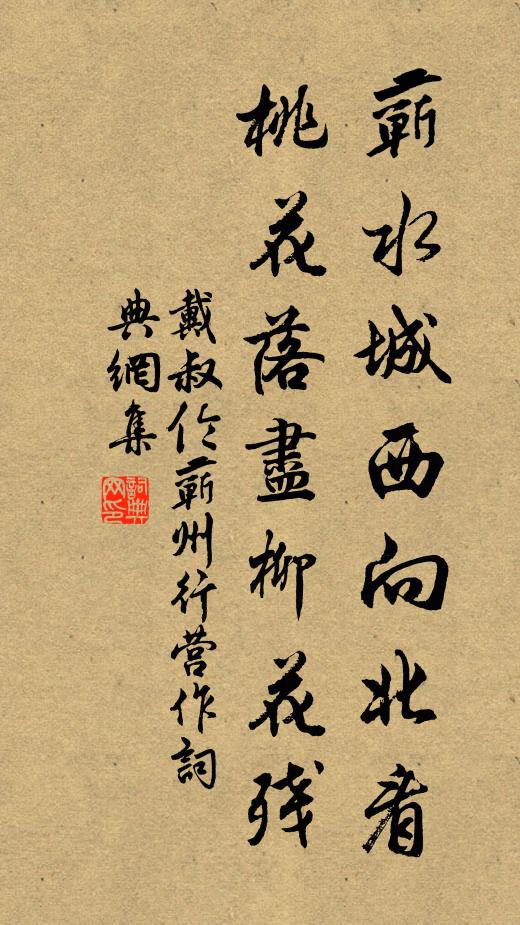 蘄水城西向北看
桃花落盡柳花殘
戴叔伦蘄州行营作詞
典網集
詞典網印